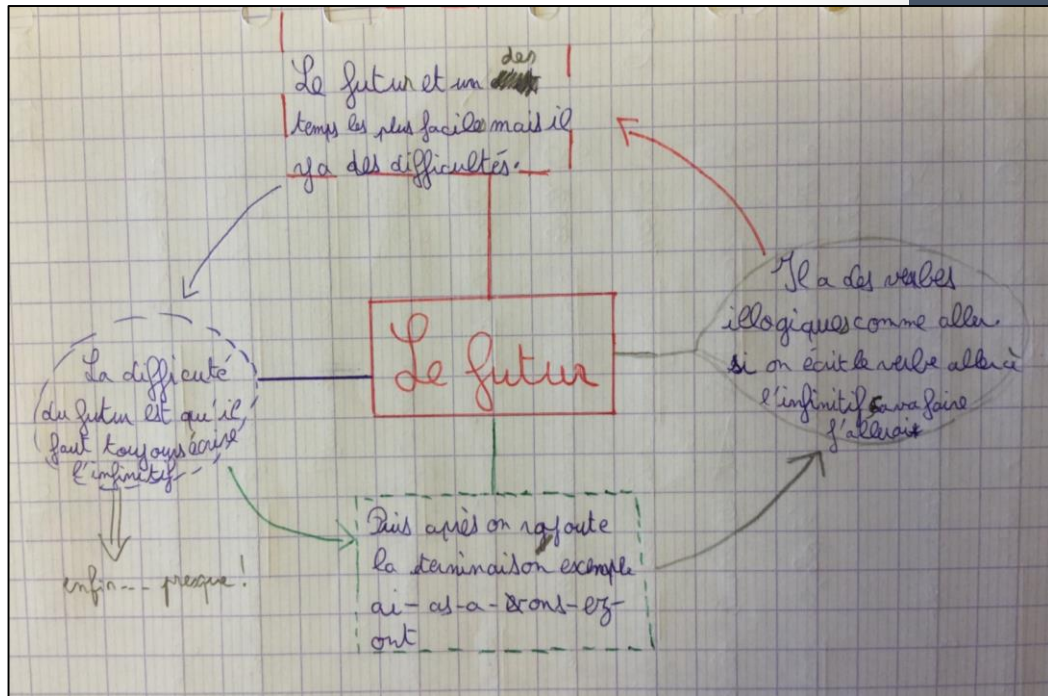 Le futur et un des
temps les plus facile mais il
y a des difficultés.
Le futur
La difficuté
du futur est qu'il
faut toujours écrire
l'infinitif
enfin--- presque!
Puis après on rajoute
la terminaison exemple
ai-as-a-ons-ez-
ont
Il a des verbes
illogiques comme aller
si on écrit le verbe aller à
l'infinitif ça va faire
j'allerai